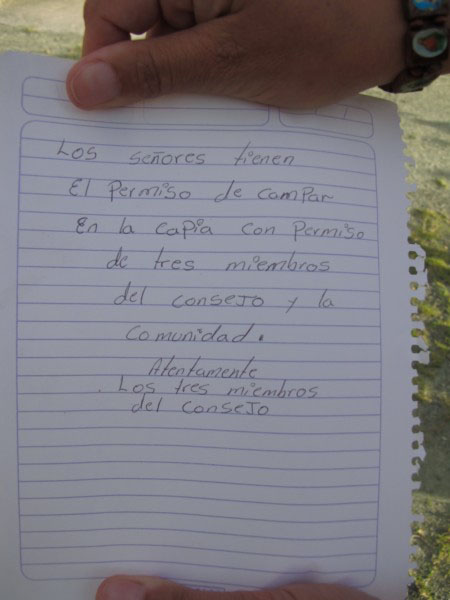 Los señores tienen
El Permiso de campar
En la capia con Permiso
de tres miembros
del consejo y la
comunidad.
Atentamente
Los tres miembros
del consejo